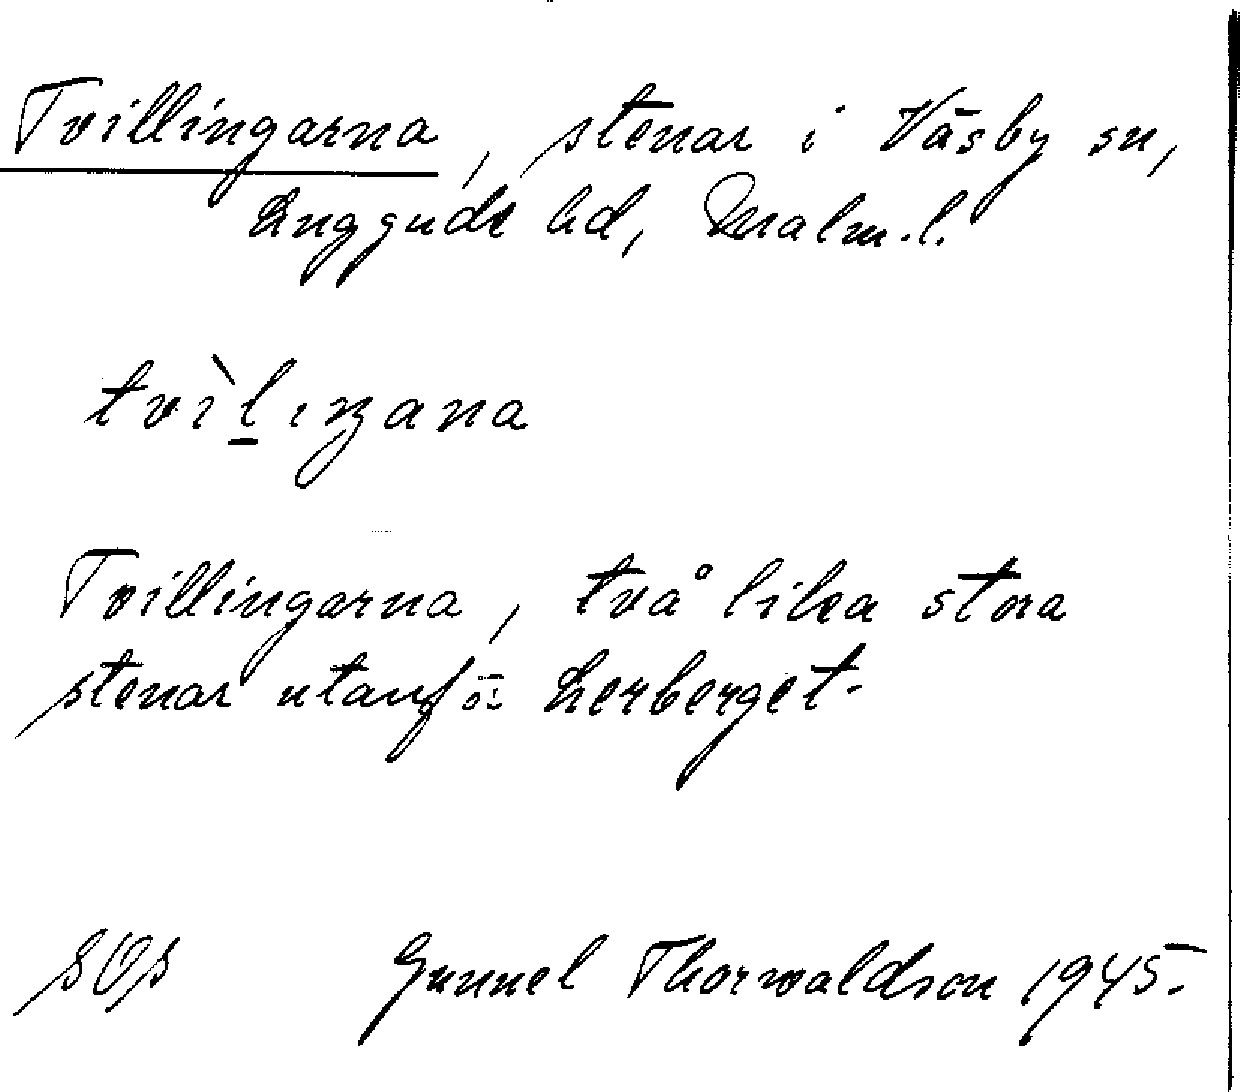 Tvillingarna, stenar i Väsby sn,
Luggude hd, Malm.l.
tvìl̠ıŋana
Tvillingarna, två lika stora
stenar utanför Lerberget.
SOS Gunnel Thorwaldson 1945.